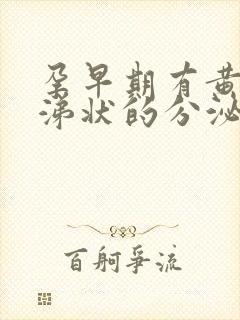 孕早期有黄
涕状的分泌
百舸争流